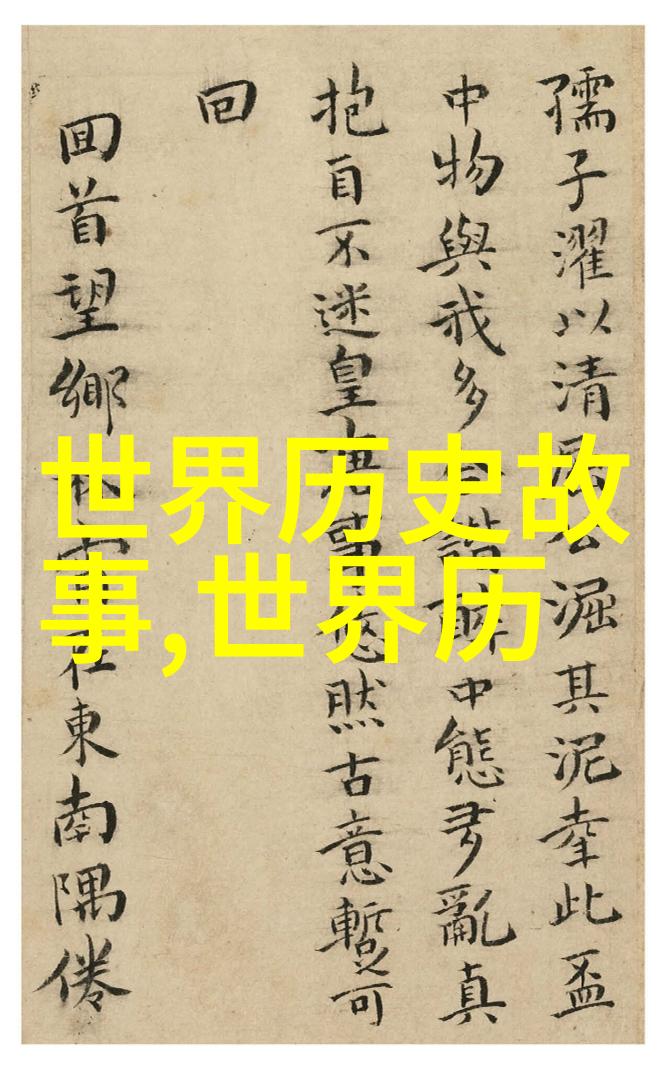 孺子濯以清公淈其泥幸此盃
中物與我多諧醉中態多亂真
抱自不迷皇悠然古意暫可
回
囬首望鄉在東南隅倦
世界历史故
事,世界历